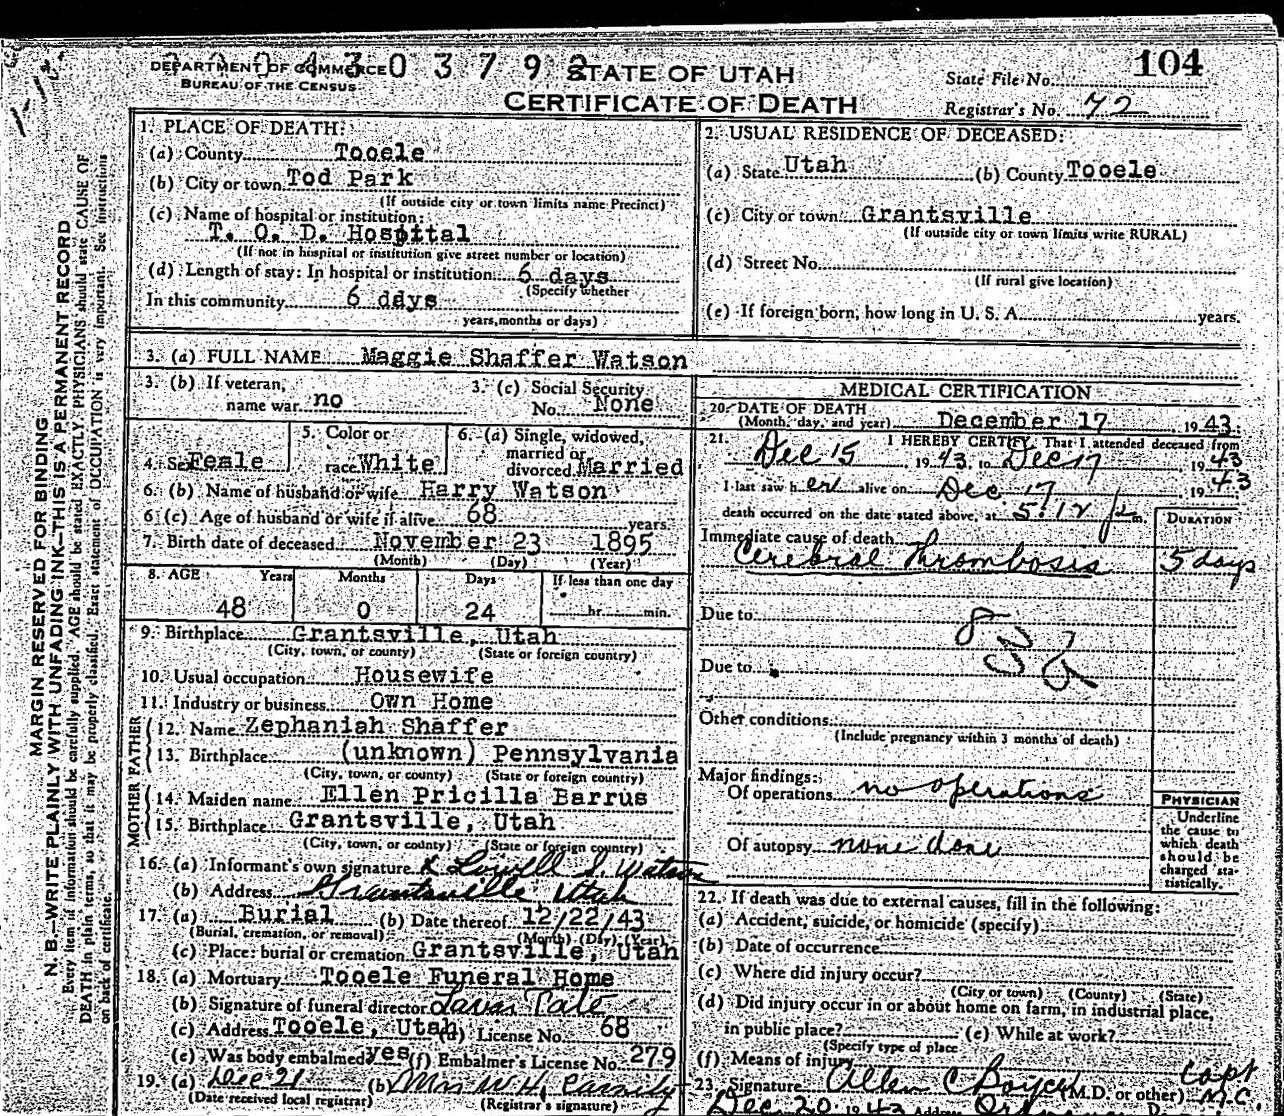 0 0 4 3 0 3 7 9 2
DEPARTMENT OF COMMERCE
BUREAU OF THE CENSUS
STATE OF UTAH
CERTIFICATE OF DEATH
104
State File No.
Registrar's No. 72
MARGIN RESERVED FOR BINDING
N. B.—WRITE PLAINLY WITH UNFADING INK—THIS IS A PERMANENT RECORD
Every item of information should be carefully supplied. AGE should be stated EXACTLY. PHYSICIANS should state CAUSE OF
DEATH in plain terms, so that it may be properly classified. Exact statement of OCCUPATION is very important. See instructions
on back of certificate.
1. PLACE OF DEATH:
(a) County Tooele
(b) City or town Tod Park
(If outside city or town limits name Precinct)
(c) Name of hospital or institution:
T. O. D. Hospital
(If not in hospital or institution give street number or location)
(d) Length of stay: In hospital or institution 6 days
(Specify whether
In this community 6 ddys
years, months or days)
2. USUAL RESIDENCE OF DECEASED:
(a) State Utah (b) County Tooele
(c) City or town Grantsville
(If outside city or town limits write RURAL)
(d) Street No.
(If rural give location)
(e) If foreign born, how long in U. S. A. years.
3. (a) FULL NAME Maggie Shaffer Watson
3. (b) If veteran,
name war no
3. (c) Social Security
No. None
4. Sex Feale
5. Color or
race White
6. (a) Single, widowed,
married or
divorced Married
6. (b) Name of husband or wife Harry Watson
6 (c) Age of husband or wife if alive 68 years
7. Birth date of deceased November 23 1895
(Month) (Day) (Year)
8. AGE Years Months Days If less than one day
48 0 24 hr. min.
9. Birthplace Grantsville, Utah
(City, town, or county) (State or foreign country)
10. Usual occupation Housewife
11. Industry or business Own Home
FATHER
12. Name Zephaniah Shaffer
13. Birthplace (unknown) Pennsylvania
(City, town, or county) (State or foreign country)
MOTHER
14. Maiden name Ellen Pricilla Barrus
15. Birthplace Grantsville, Utah
(City, town, or county) (State or foreign country)
16. (a) Informant's own signature x Lowell S. Watson
(b) Address Grantsville Utah
17. (a) Burial (b) Date thereof 12/22/43
(Burial, cremation, or removal) (Month) (Day) (Year)
(c) Place: burial or cremation Grantsville, Utah
18. (a) Mortuary Tooele Funeral Home
(b) Signature of funeral director Lavar Tate
(c) Address Tooele, Utah (d) License No. 68
(e) Was body embalmed yes (f) Embalmer's License No. 279
19. (a) Dec 21 (b) Mrs W. H. Cassity
(Date received local registrar) (Registrar's signature)
MEDICAL CERTIFICATION
20. DATE OF DEATH
(Month, day, and year) December 17 1943.
21. I HEREBY CERTIFY, That I attended deceased from
Dec 15, 1943, to Dec 17, 1943
I last saw her alive on Dec 17, 1943
death occurred on the date stated above, at 5:12 p m.
DURATION
Immediate cause of death
Cerebral Thrombosis 5 days
Due to
83
Due to
Other conditions
(Include pregnancy within 3 months of death)
Major findings:
Of operations no operations
Of autopsy none done
PHYSICIAN
Underline
the cause to
which death
should be
charged sta-
tistically.
22. If death was due to external causes, fill in the following:
(a) Accident, suicide, or homicide (specify)
(b) Date of occurrence
(c) Where did injury occur?
(City or town) (County) (State)
(d) Did injury occur in or about home on farm, in industrial place,
in public place? (e) While at work?
(Specify type of place
(f) Means of injury
23. Signature Allen C Boyce (M.D. or other) Capt M.C.
Dec 20 1943 Address